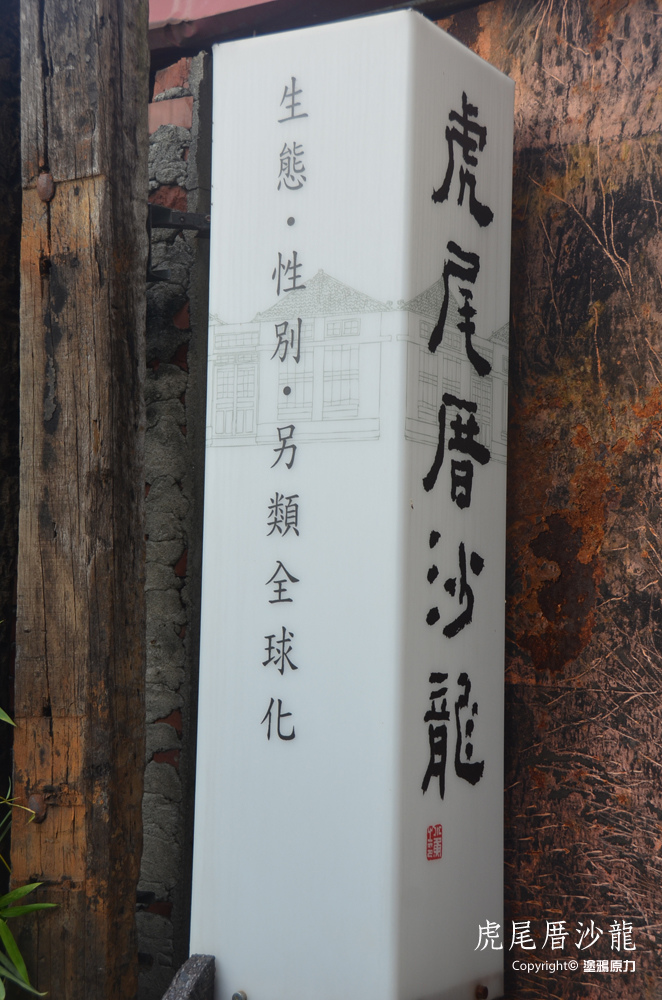 虎尾厝沙龍
生態・性別・另類全球化
虎尾厝沙龍
Copyright© 塗鴉原力